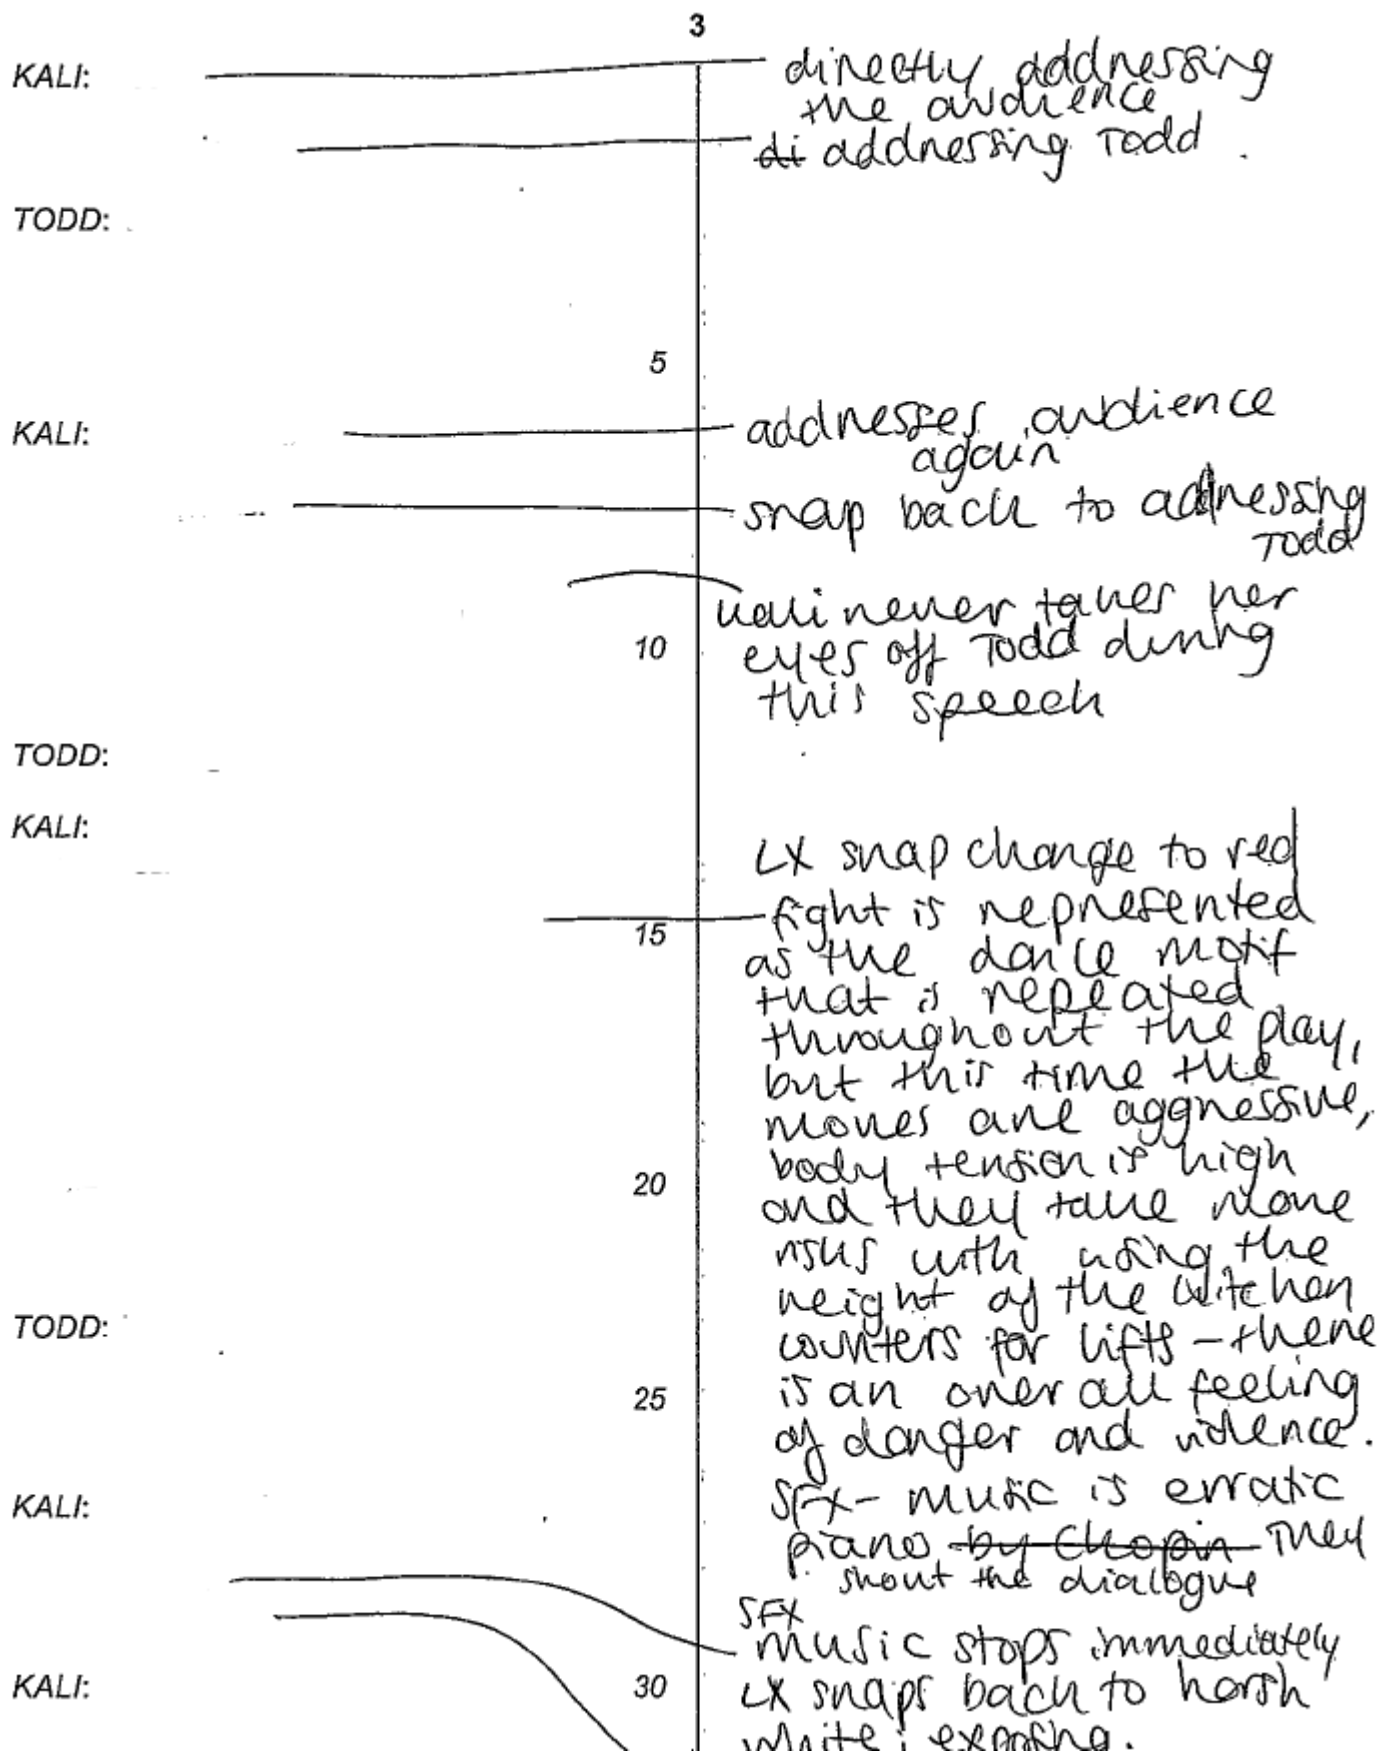 3
KALI: directly addressing
the audience
di addressing Todd
TODD:
5
KALI: addresses audience
again
snap back to addressing
Todd
Kali never takes her
10 eyes off Todd during
this speech
TODD:
KALI:
LX snap change to red
15 fight is represented
as the dance motif
that is repeated
throughout the play,
but this time the
moves are aggressive,
body tension is high
20 and they take more
risks with using the
height of the kitchen
TODD: counters for lifts - there
25 is an over all feeling
of danger and violence.
KALI: SFX - music is erratic
piano by Chopin They
shout the dialogue
SFX
music stops immediately
KALI: 30 LX snaps back to harsh
white; exposing.